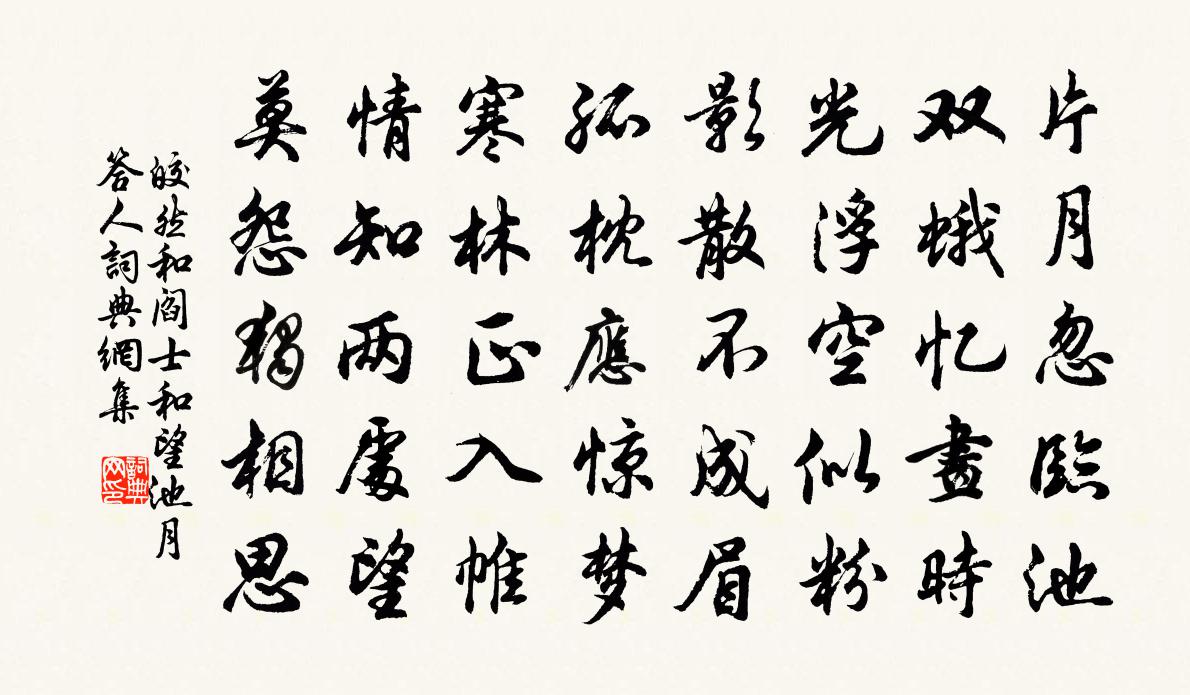 片月忽臨池
双蛾忆畫時
光浮空似粉
影散不成眉
孤枕應惊梦
寒林正入帷
情知两處望
莫怨獨相思
皎然和阎士和望池月
答人詞典網集
詞典網印